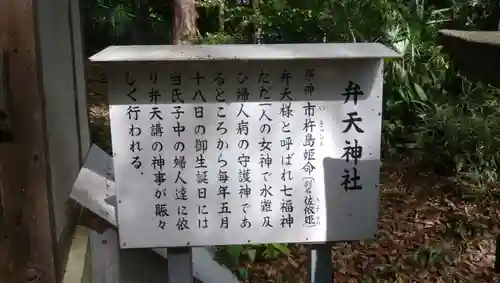 弁天神社
祭神 市杵島姫命(別名 佐依姫)
弁天様と呼ばれ七福神
ただ一人の女神で水難及
び婦人病の守護神であ
るところから毎年五月
十八日の御生誕日には
当氏子中の婦人達に依
り弁天講の神事が賑々
しく行われる.